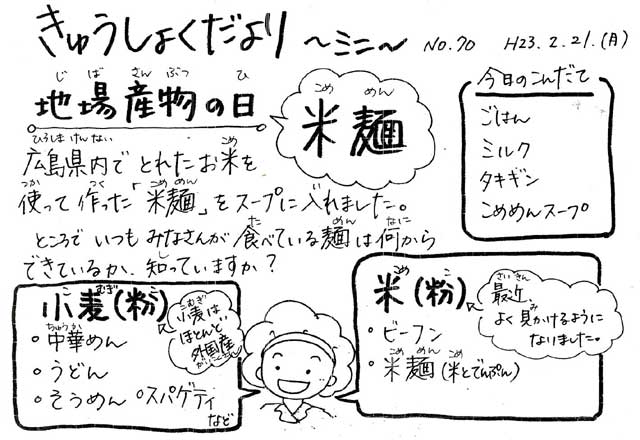 きゅうしょくだより ～ミニ～ No.70 H23.2.21.(月)
じ ば さん ぶつ ひ
地場産物の日
こめ めん
米麺
今日のこんだて
ごはん
ミルク
タキギン
こめめんスープ
ひろしま けんない こめ
広島県内で とれたお米を
つか つく こめ めん い
使って 作った「米麺」をスープに入れました。
た めん なに
ところで いつも みなさんが 食べている麺は何から
し
できているか、知っていますか？
こ むぎ こ
小麦(粉)
ちゅうか
・中華めん
・うどん
・そうめん ・スパゲティ
など
こむぎ
小麦は
ほとんど
外国産
がいこくさん
こめ こ
米(粉)
・ビーフン
こめ めん こめ
・米麺(米とでんぷん)
さいきん
最近、
み
よく見かけるように
なりました。